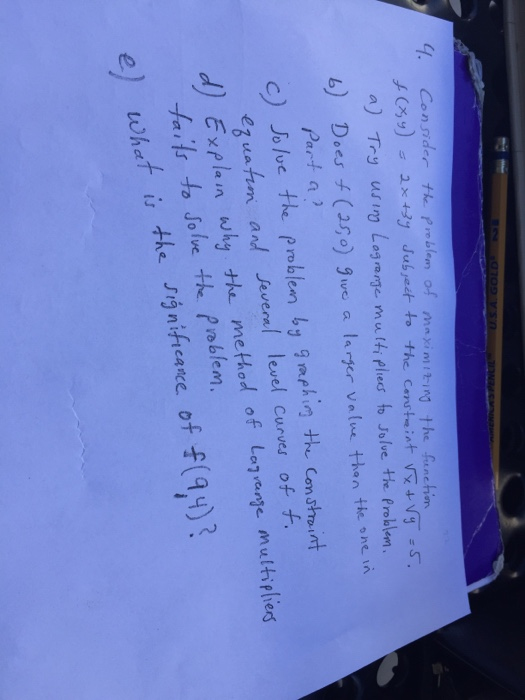 4. Consider the problem of maximizing the function
f(x,y) = 2x+3y subject to the constraint √x + √y = 5.
a) Try using Lagrange multipliers to solve the problem.
b) Does f(25,0) give a larger value than the one in
part a?
c) Solve the problem by graphing the constraint
equation and several level curves of f.
d) Explain why the method of Lagrange multipliers
fails to solve the problem.
e) What is the significance of f(9,4)?